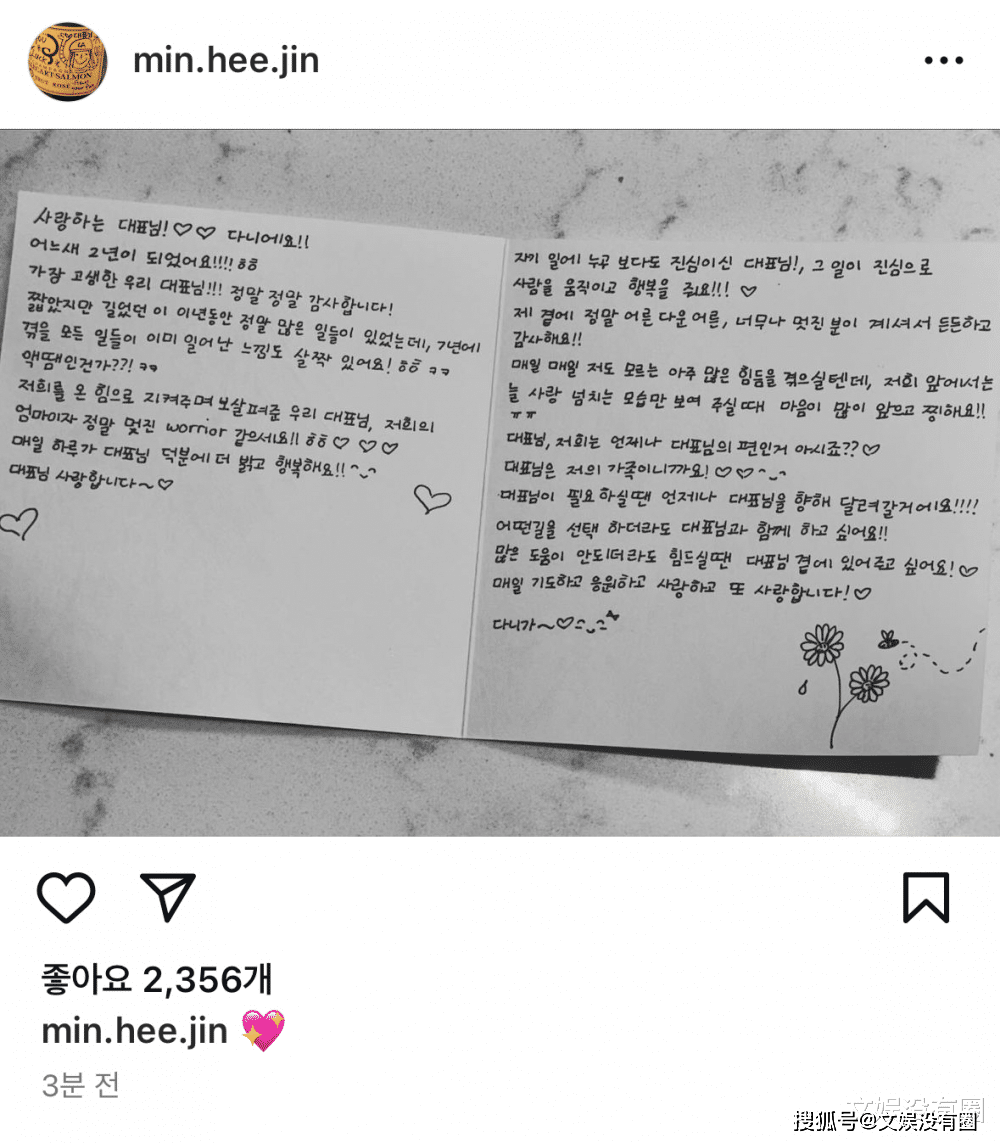 min.hee.jin
사랑하는 대표님!♡♡ 다니에요!!
어느새 2년이 되었어요!!!! ㅎㅎ
가장 고생한 우리 대표님!!! 정말 정말 감사합니다!
짧았지만 길었던 이 이년동안 정말 많은 일들이 있었는데, 7년에
겪을 모든 일들이 이미 일어난 느낌도 살짝 있어요! ㅎㅎ ㅋㅋ
액땜인건가??! ㅋㅋ
저희를 온 힘으로 지켜주며 보살펴준 우리 대표님, 저희의
엄마이자 정말 멋진 worrior 같으세요!! ㅎㅎ♡ ♡♡
매일 하루가 대표님 덕분에 더 밝고 행복해요!! ^_^
대표님 사랑합니다~♡
자기 일에 누구 보다도 진심이신 대표님!, 그 일이 진심으로
사람을 움직이고 행복을 줘요!!! ♡
제 곁에 정말 어른 다운 어른, 너무나 멋진 분이 계셔서 든든하고
감사해요!!
매일 매일 저도 모르는 아주 많은 힘듦을 겪으실텐데, 저희 앞에서는
늘 사랑 넘치는 모습만 보여 주실 때 마음이 많이 아프고 찡해요!!
ㅠㅠ
대표님, 저희는 언제나 대표님의 편인거 아시죠??♡
대표님은 저희 가족이니까요!♡♡^_^
대표님이 필요하실땐 언제나 대표님을 향해 달려갈거에요!!!!
어떤길을 선택 하더라도 대표님과 함께 하고 싶어요!!
많은 도움이 안되더라도 힘드실땐 대표님 곁에 있어주고 싶어요!♡
매일 기도하고 응원하고 사랑하고 또 사랑합니다!♡
다니가~♡
좋아요 2,356개
min.hee.jin 💖
3분 전
文娱没有圈
搜狐号@文娱没有圈